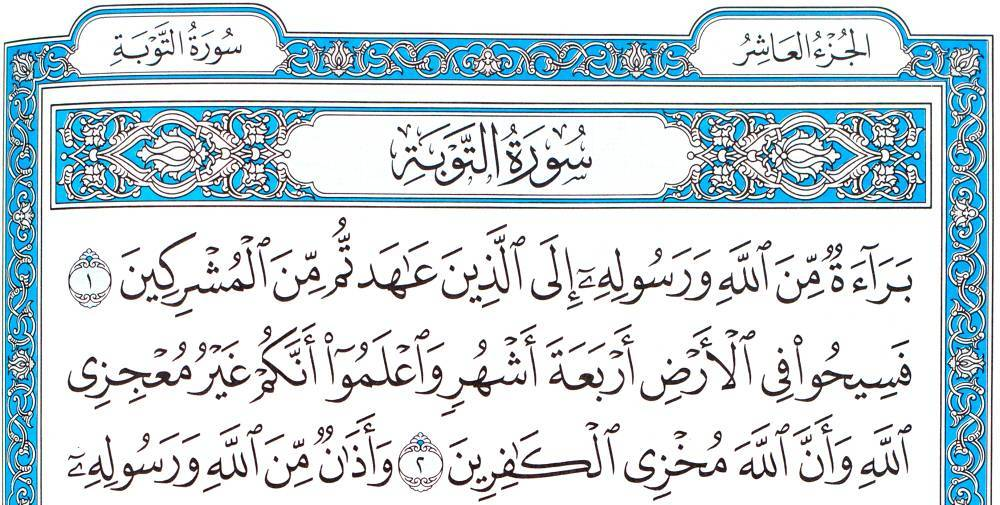 الجزء العاشر
سورة التوبة
سُورَةُ التَّوْبَةِ
بَرَآءَةٌ مِّنَ ٱللَّهِ وَرَسُولِهِۦٓ إِلَى ٱلَّذِينَ عَٰهَدتُّم مِّنَ ٱلْمُشْرِكِينَ ١
فَسِيحُوا۟ فِى ٱلْأَرْضِ أَرْبَعَةَ أَشْهُرٍ وَٱعْلَمُوٓا۟ أَنَّكُمْ غَيْرُ مُعْجِزِى
ٱللَّهِ وَأَنَّ ٱللَّهَ مُخْزِى ٱلْكَٰفِرِينَ ٢ وَأَذَٰنٌ مِّنَ ٱللَّهِ وَرَسُولِهِۦٓ